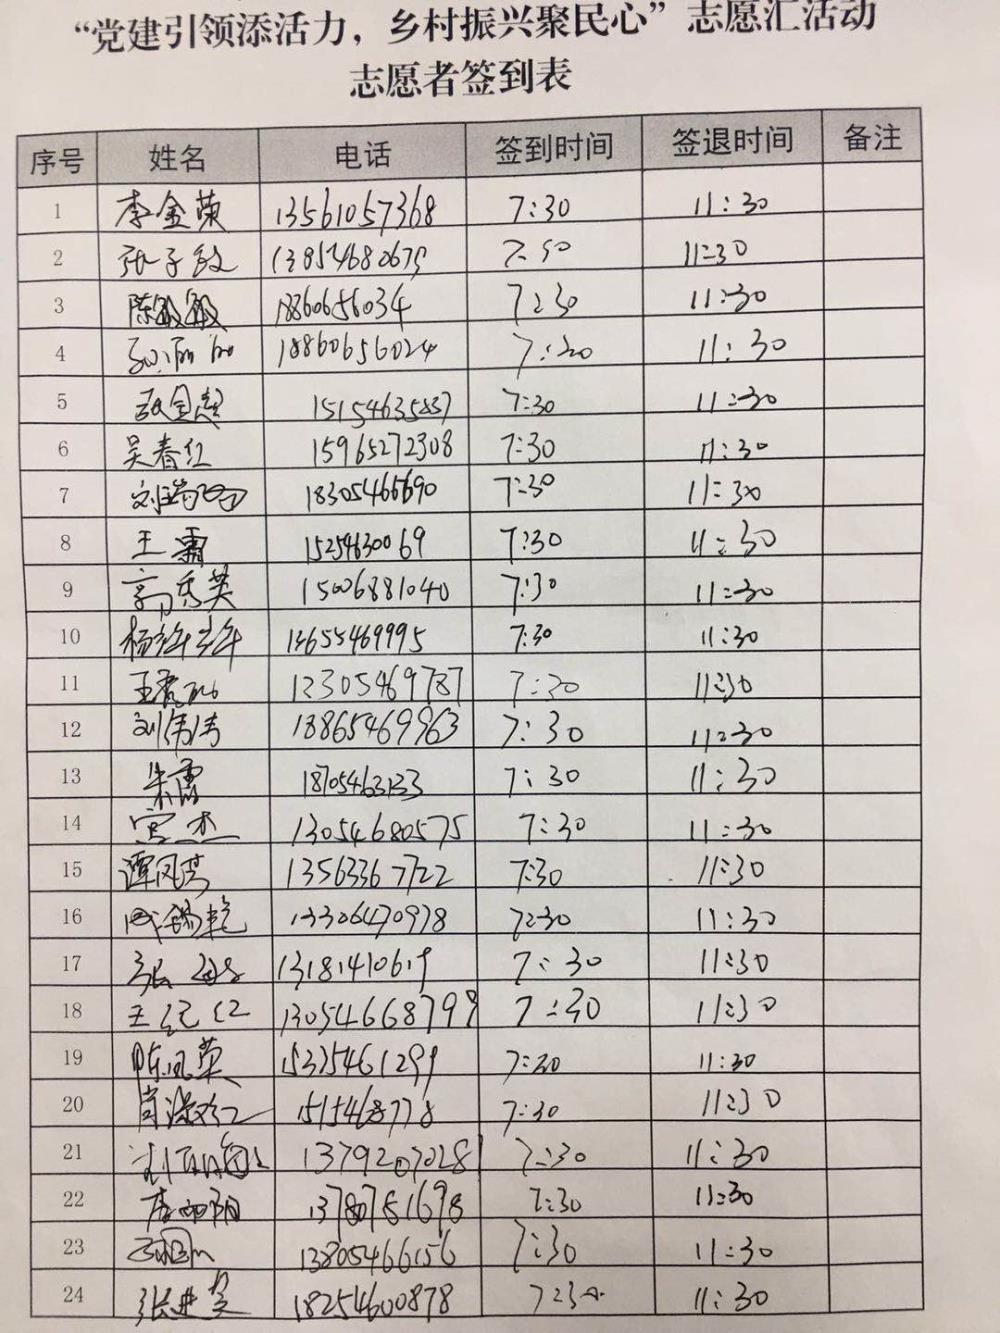 “党建引领添活力，乡村振兴聚民心”志愿汇活动
志愿者签到表
序号 姓名 电话 签到时间 签退时间 备注
1 李金荣 13561057368 7:30 11:30
2 张子敏 13854680675 7:50 11:30
3 陈敏敏 18860656034 7:30 11:30
4 18860656024 7:30 11:30
5 15154635837 7:30 11:30
6 吴春红 15965272308 7:30 11:30
7 刘瑞阳 18305466690 7:30 11:30
8 王霜 15254630069 7:30 11:30
9 高秀英 15006881040 7:30 11:30
10 13655469995 7:30 11:30
11 12305469787 7:30 11:30
12 刘伟涛 13865469963 7:30 11:30
13 朱霞 18705463133 7:30 11:30
14 宫杰 13054680575 7:30 11:30
15 谭凤芹 13563367722 7:30 11:30
16 13306470978 7:30 11:30
17 张 13181410619 7:30 11:30
18 王纪红 13054668799 7:30 11:30
19 陈凤英 15335461299 7:30 11:30
20 肖淑红 1515468778 7:30 11:30
21 13792070281 7:30 11:30
22 13780781698 7:30 11:30
23 13805466156 7:30 11:30
24 张进 18254600878 7:30 11:30